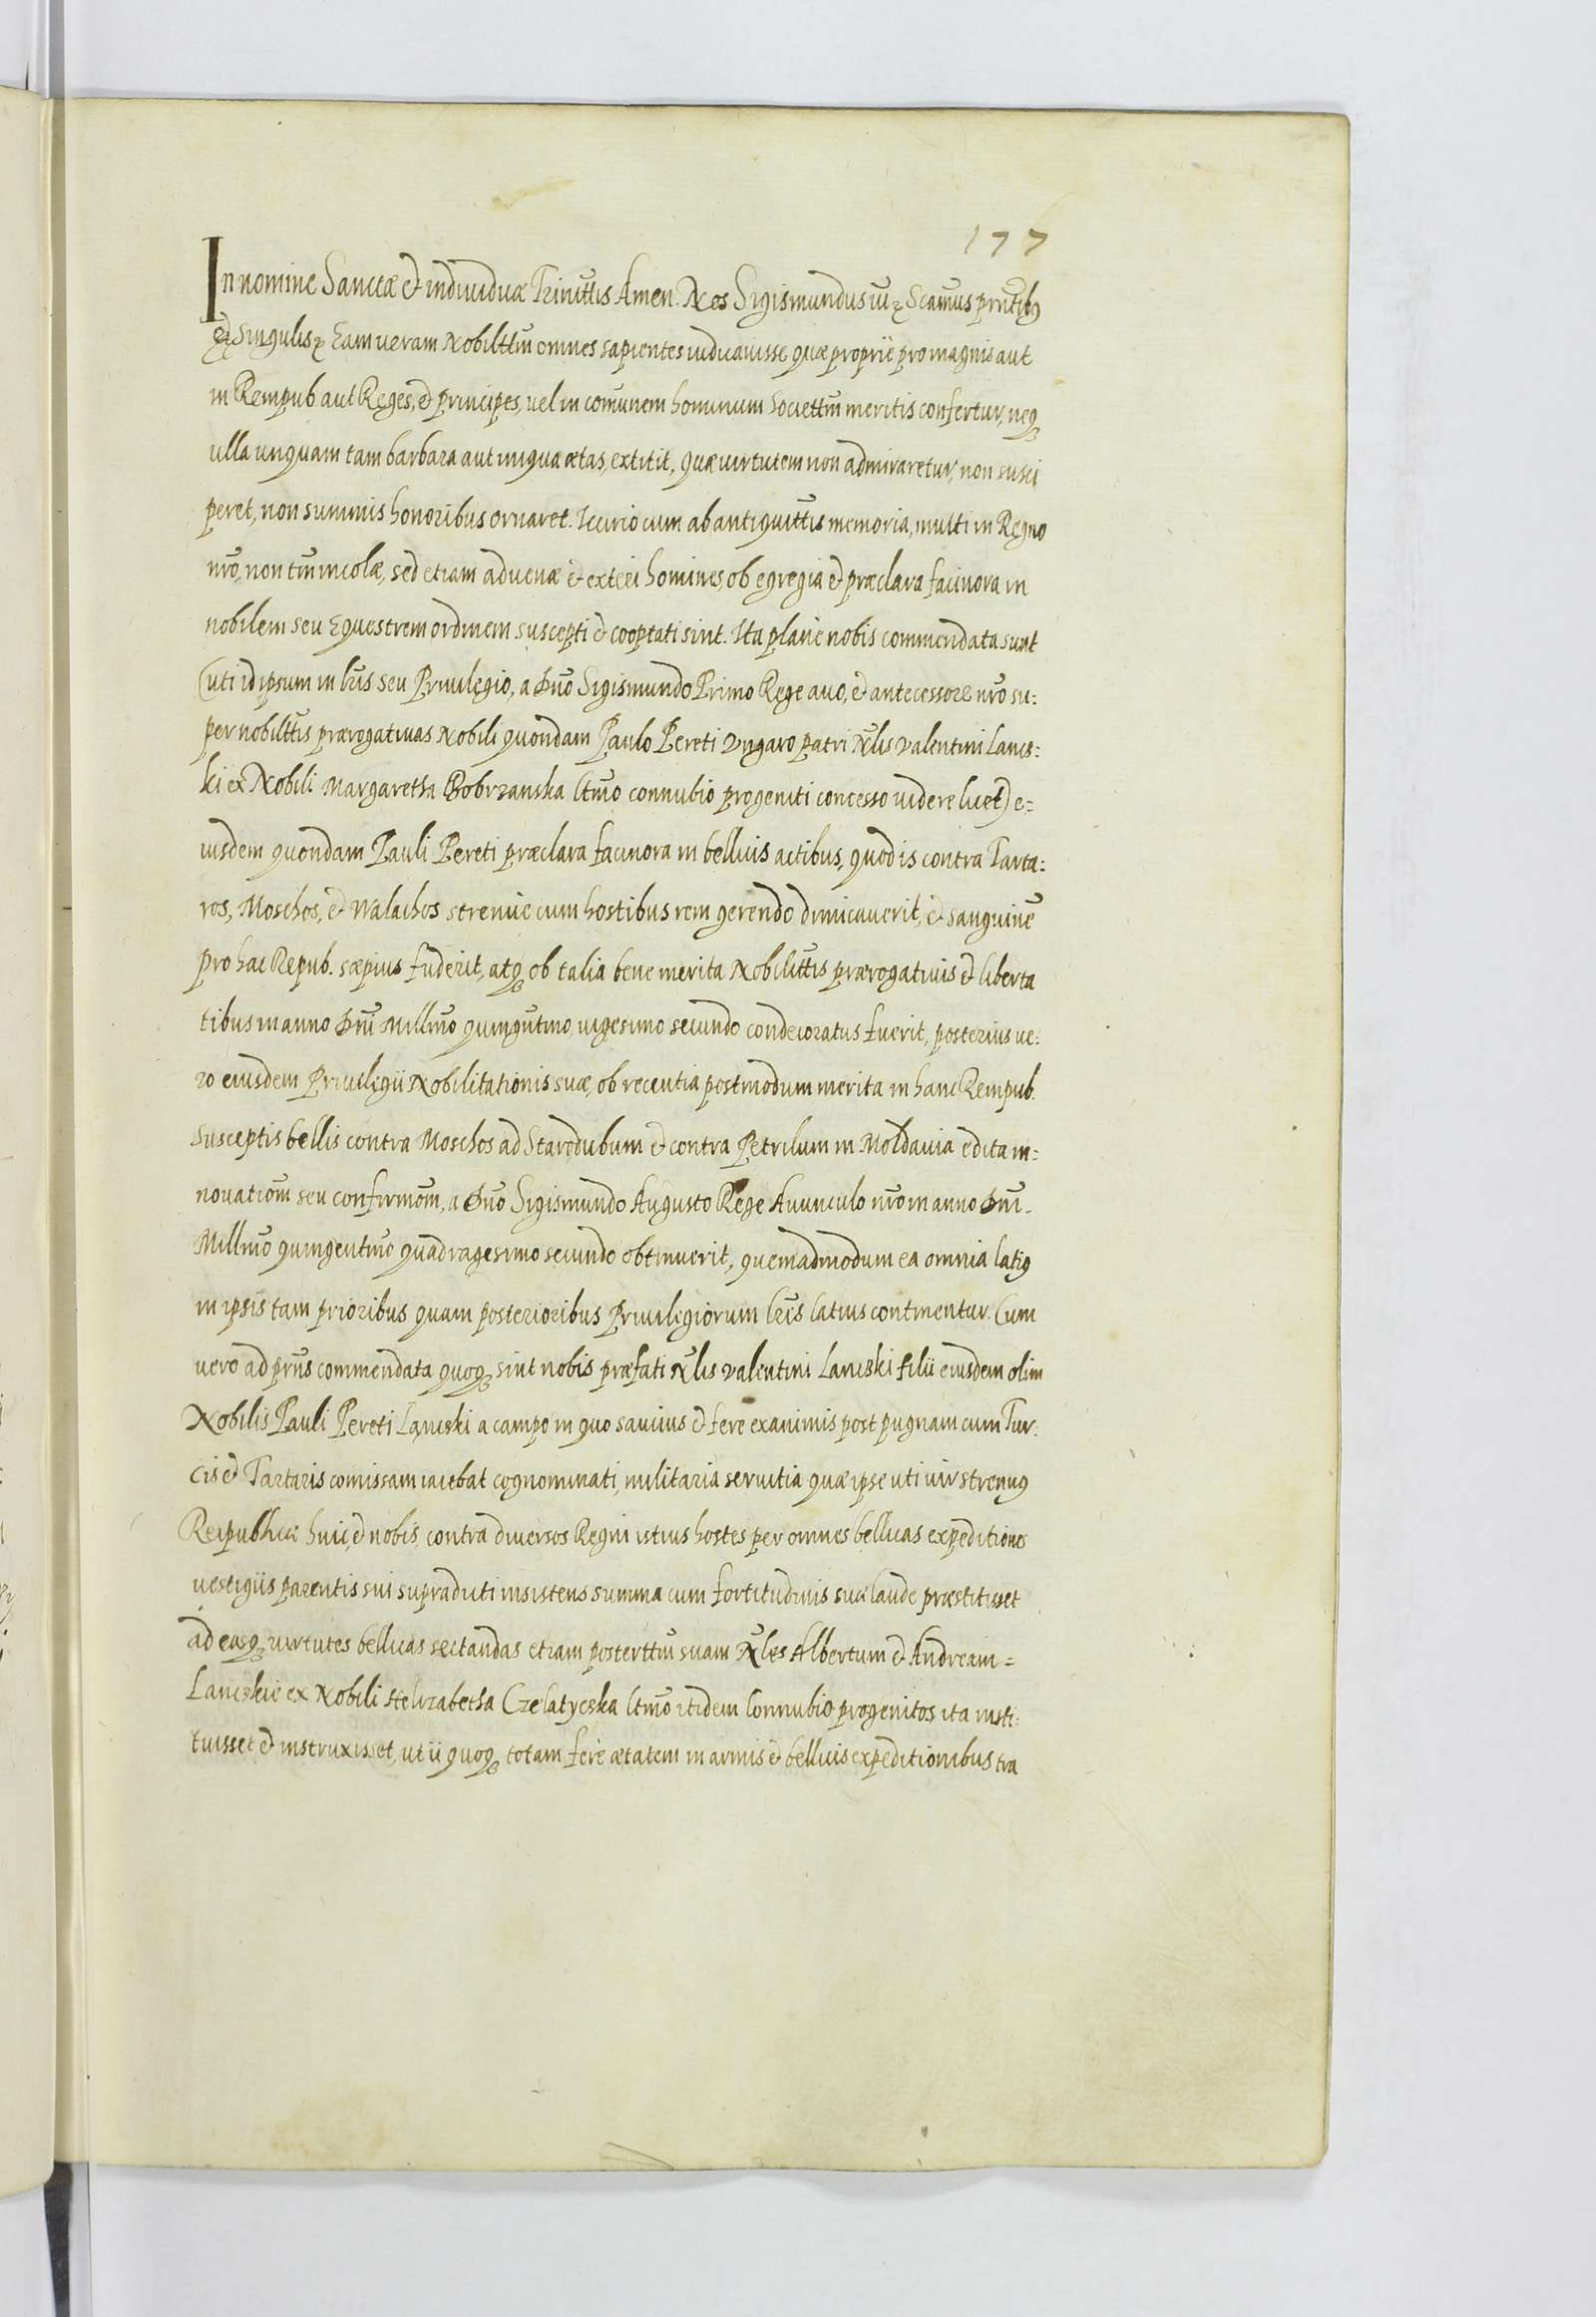 177
In nomine Sanctæ et indiuiduæ Trinittis Amen. Nos Sigismundus iii &c Scamus prntibq
et Singulis &c Eam ueram Nobilttm omnes sapientes iudicauisse quæ proprie pro magnis aut
in Rempub aut Reges, et principes, uel in comunem hominum Societtm meritis confertur, neq
ulla unquam tam barbara aut iniqua ætas, extitit, quæ uirtutem non admiraretur, non susci
peret, non summis honoribus ornaret. Iccirio cum ab antiquittis memoria, multi in Regno
nro, non tm incolæ, sed etiam aduenæ et exteri homines, ob egregia et præclara facinora in
nobilem seu Equestrem ordinem suscepti et cooptati sint. Ita plane nobis commendata sunt
(uti id ipsum in lris seu Priuilegio, a Dno Sigismundo Primo Rege auo, et antecessore nro su:
per nobilttis prærogatiuas Nobili quondam Paulo Pereti Vngaro patri Nlis Valentini Lancs:
ki ex Nobili Margaretha Bobrzanska ltmo connubio progeniti concesso uidere licet) e=
iusdem quondam Pauli Pereti præclara facinora in bellicis actibus, quod is contra Tarta:
ros, Moschos, et Walachos strenue cum hostibus rem gerendo dimicauerit, et sanguine
pro hac Repub. sæpius fuderit, atq ob talia bene merita Nobilittis prærogatiuis et liberta
tibus in anno Dni Millmo quingutmo, uigesimo secundo condecoratus fuerit, posterius ue:
ro eiusdem Priuilegii Nobilitationis suæ, ob recentia postmodum merita in hanc Rempub.
susceptis bellis contra Moschos ad Starodubum et contra Petrilum in Moldauia edita in=
nouatiom seu confirmom, a Dno Sigismundo Augusto Rege Auunculo nro in anno Dni.
Millmo quingentmo quadragesimo secundo obtinuerit, quemadmodum ea omnia latiq
in ipsis tam prioribus quam posterioribus Priuilegiorum lris latius continentur. Cum
uero ad prns commendata quoq sint nobis præfati Nlis Valentini Lancski filii eiusdem olim
Nobilis Pauli Pereti Lancski a campo in quo saucius et fere exanimis post pugnam cum Tur:
cis et Tartaris comissam iacebat cognominati, militaria seruitia quæ ipse uti uir strenuq
Reipublicæ huic, et nobis, contra diuersos Regni istius hostes per omnes bellicas expeditiones
uestigiis parentis sui supradicti insistens summa cum fortitudinis suæ laude præstitisset
ad easq uirtutes bellicas sectandas etiam posterttm suam Nles Albertum et Andream=
Lancskie ex Nobili Helizabetha Czelatycska ltmo itidem Connubio progenitos ita insti:
tuisset et instruxisset, ut ii quoq totam fere ætatem in armis et bellicis expeditionibus tra